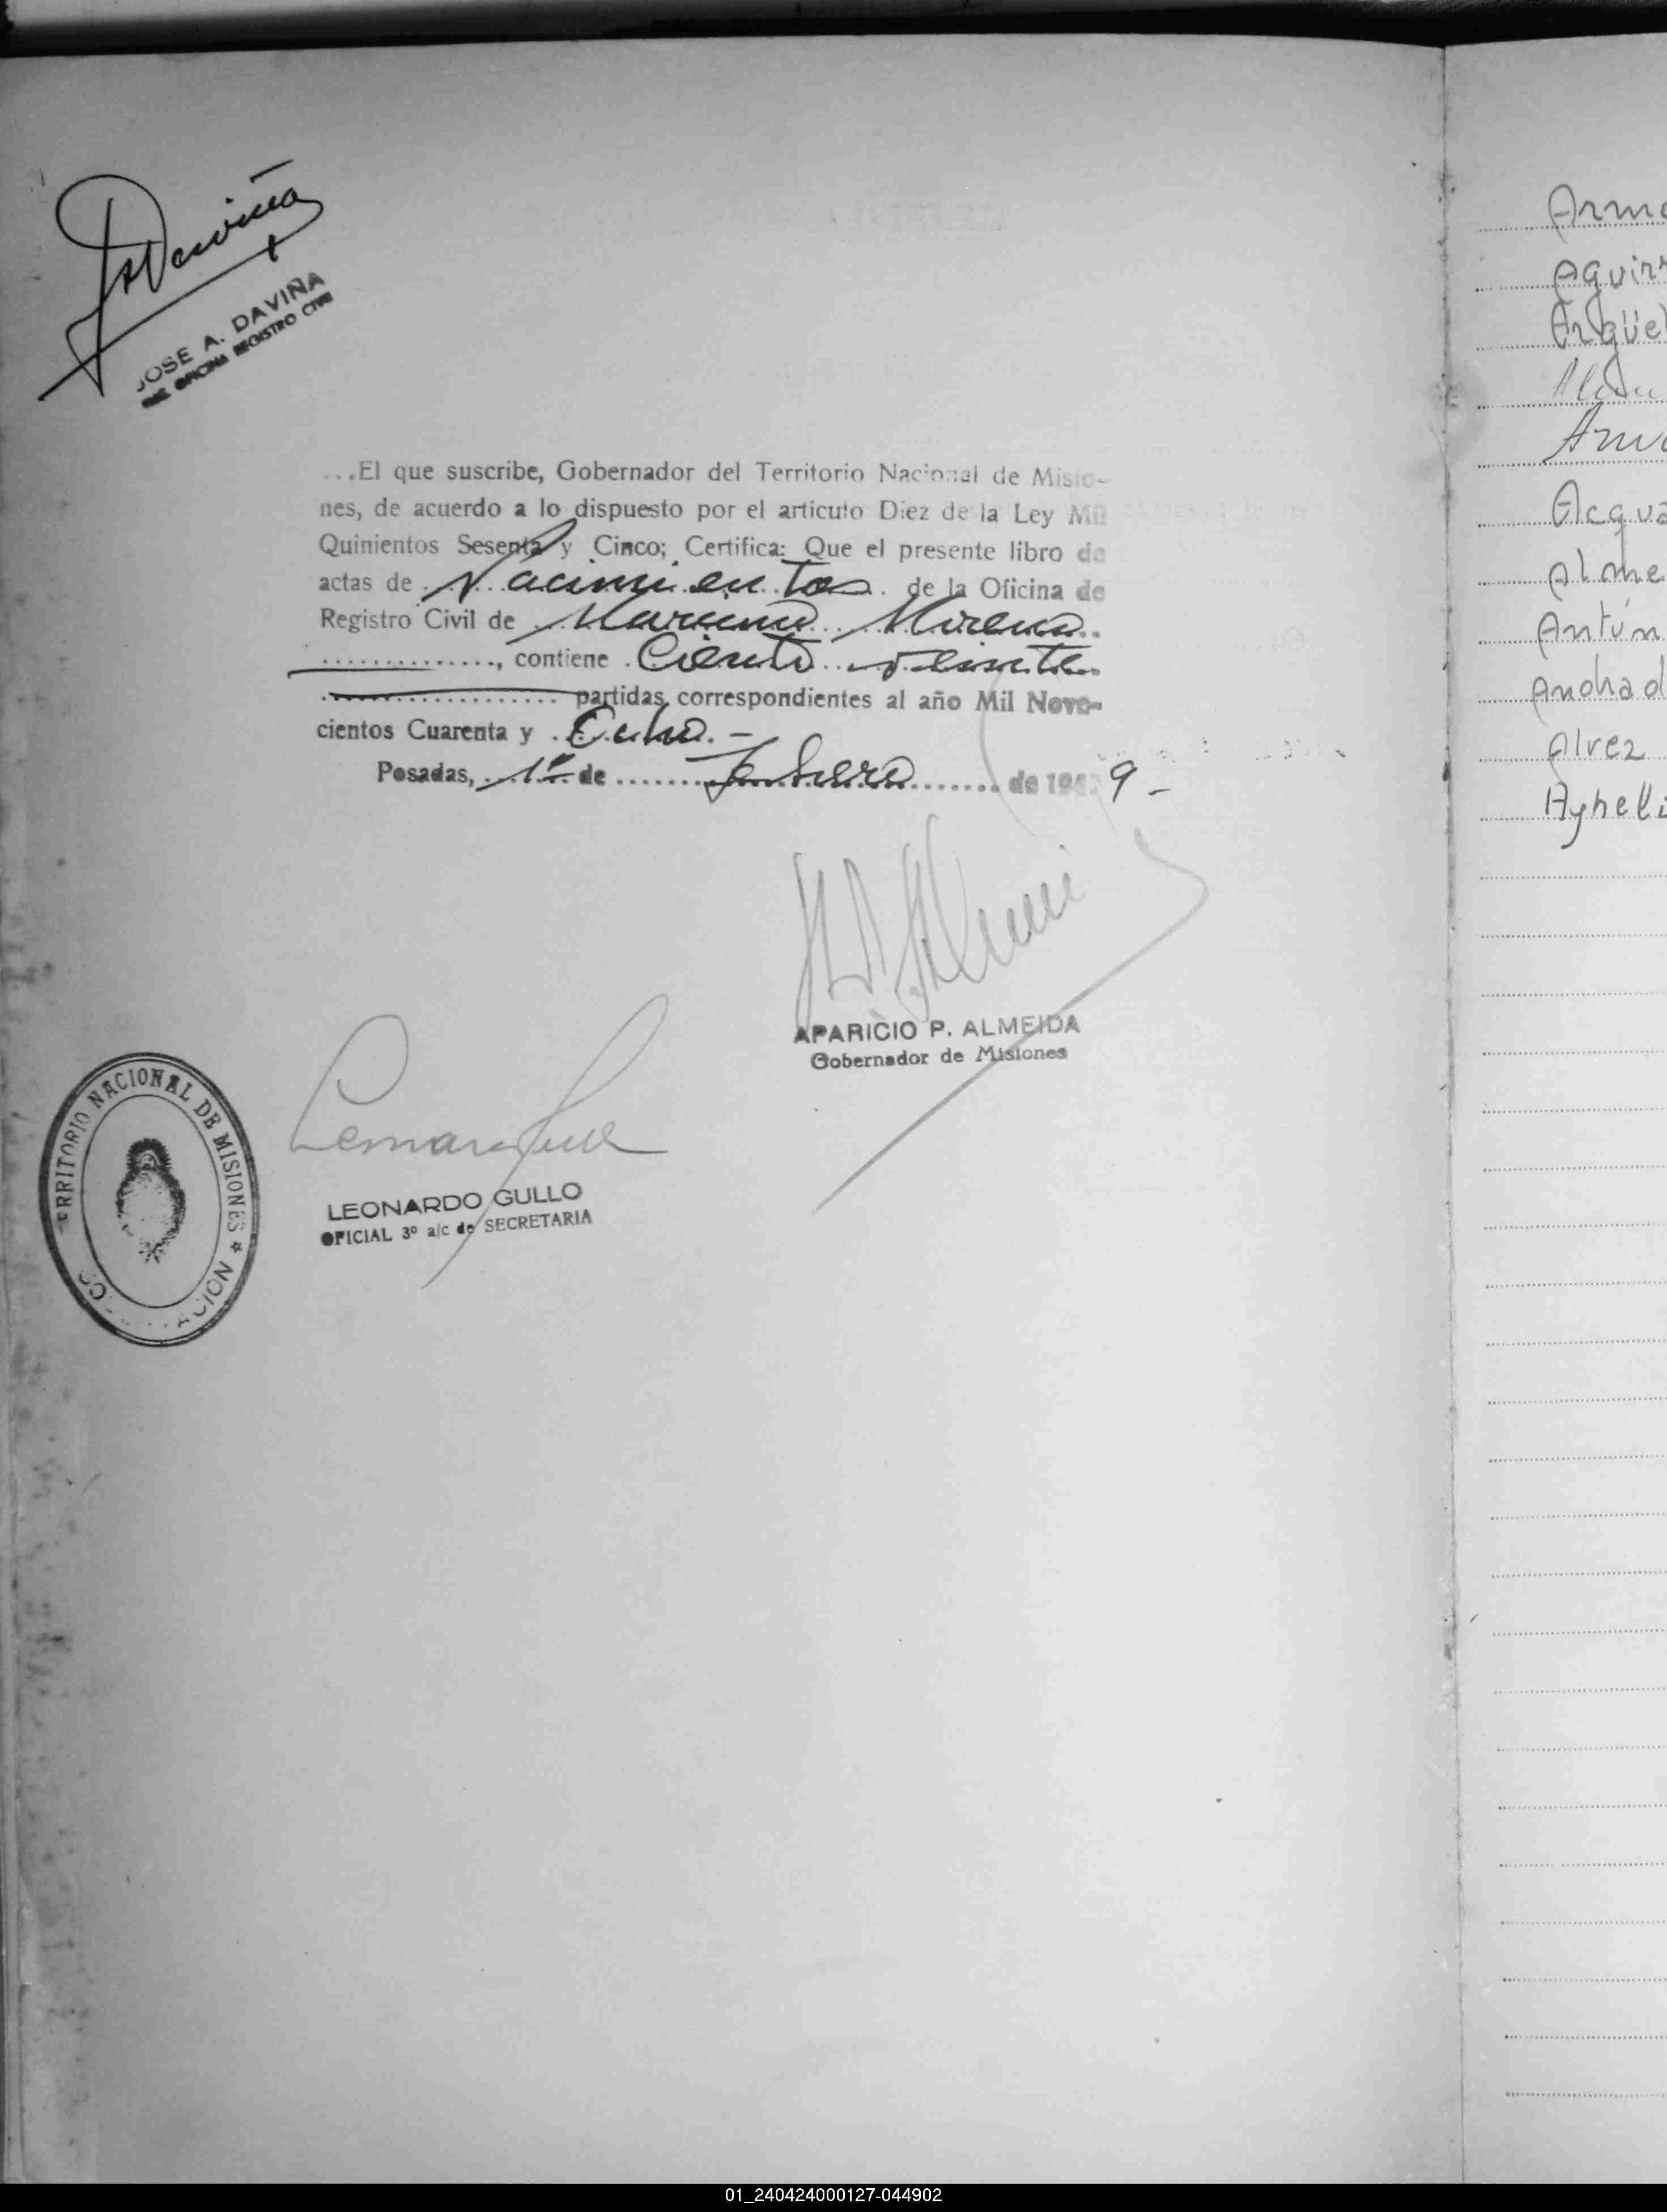 JOSE A. DAVIÑA
OFICINA REGISTRO CIVIL
...El que suscribe, Gobernador del Territorio Nacional de Misio-
nes, de acuerdo a lo dispuesto por el artículo Diez de la Ley Mil
Quinientos Sesenta y Cinco; Certifica: Que el presente libro de
actas de Nacimientos de la Oficina de
Registro Civil de Mariano Moreno
, contiene Ciento veinte
partidas correspondientes al año Mil Nove-
cientos Cuarenta y Ocho.-
Posadas, 1º de Febrero de 1949-
APARICIO P. ALMEIDA
Gobernador de Misiones
LEONARDO GULLO
OFICIAL 3º a/c de SECRETARIA
TERRITORIO NACIONAL DE MISIONES
Arm
Aguirr
Argüel
Acqua
Alme
Antún
Andrad
Alvez
Ayheli
01_240424000127-044902